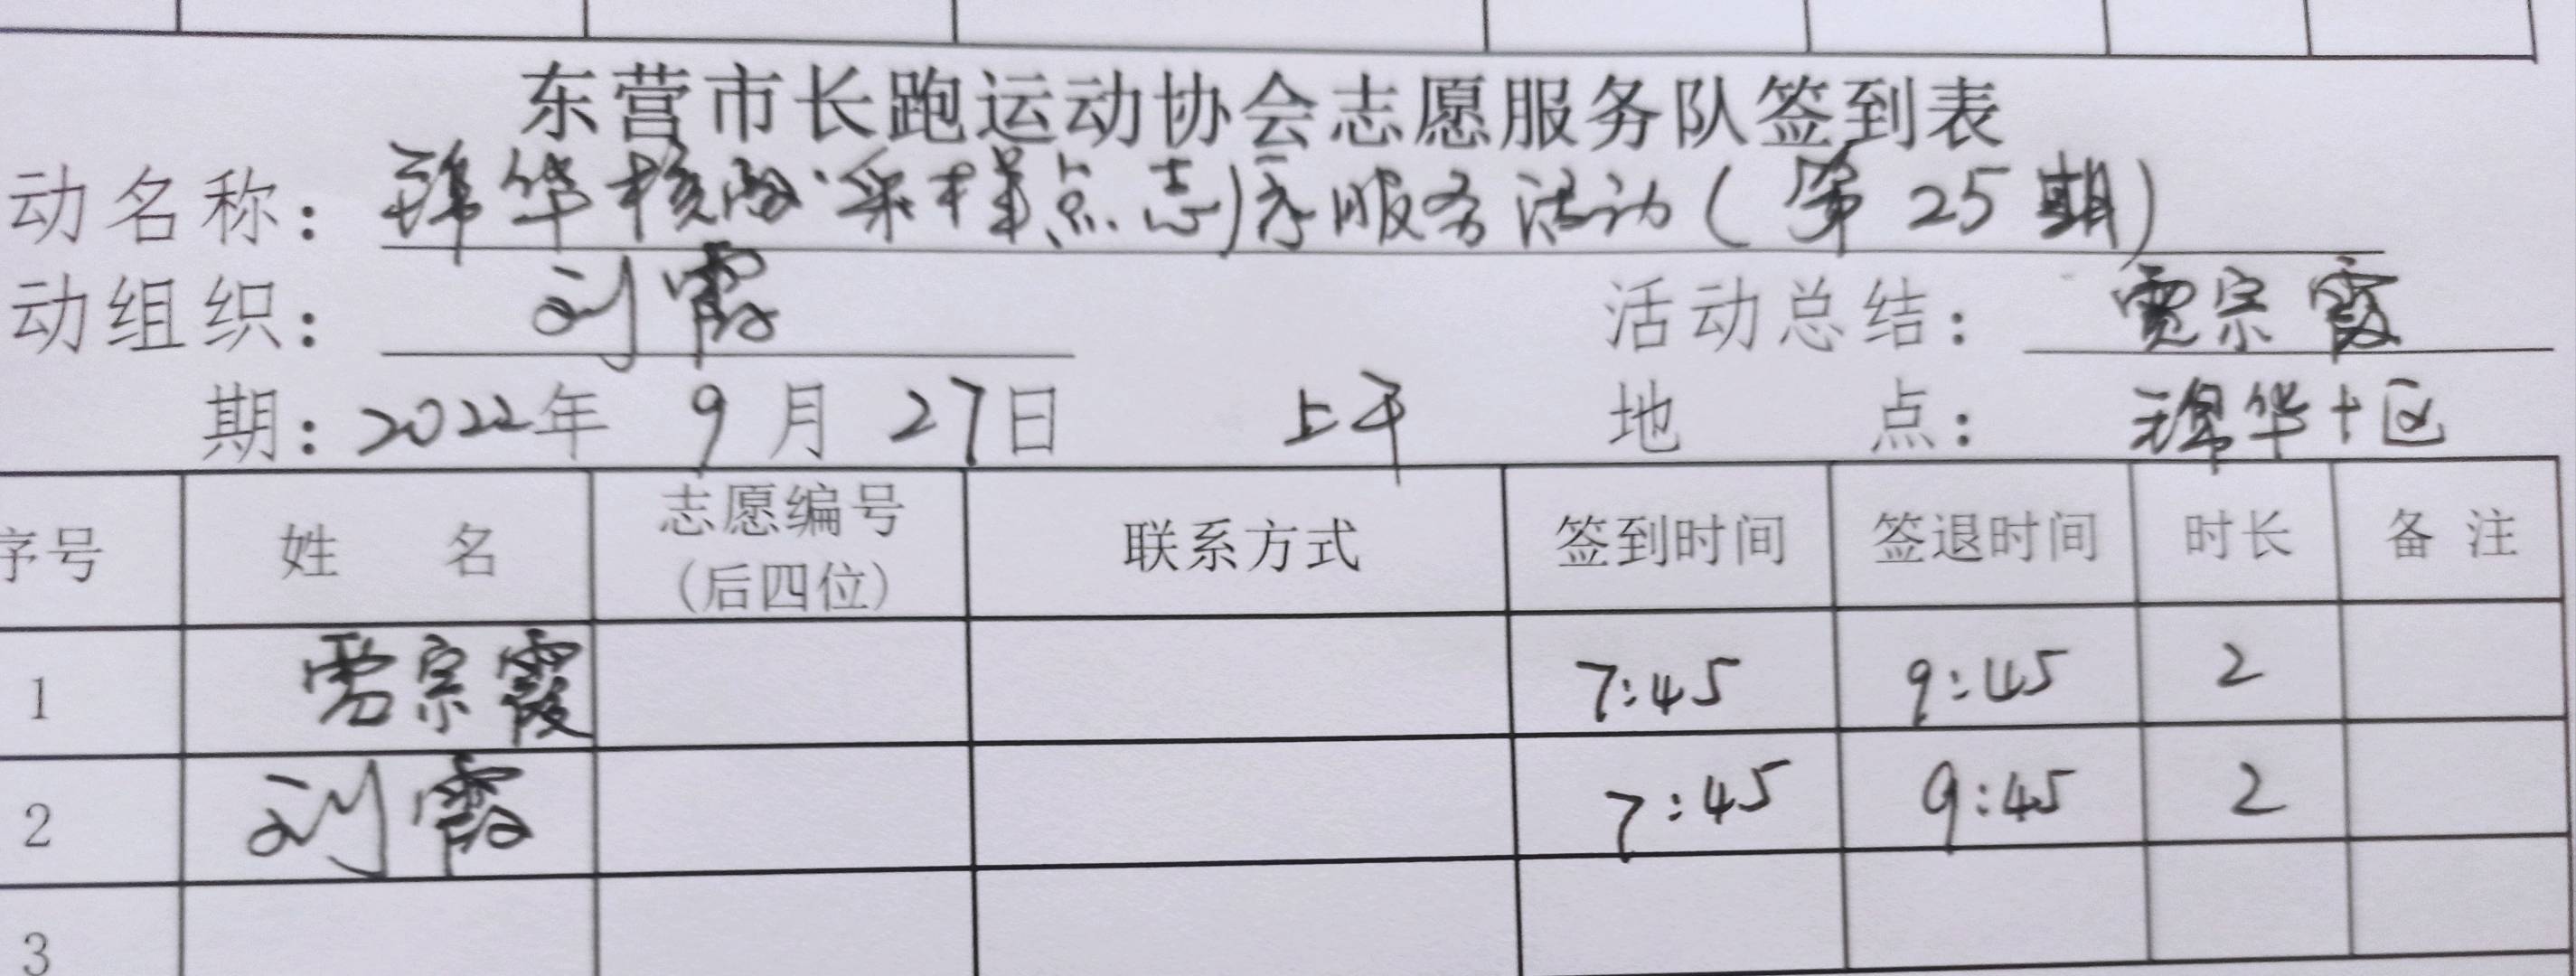 东营市长跑运动协会志愿服务队签到表
动名称：锦华核酸采样点志愿服务活动（第25期）
动组织：刘霞 活动总结：贾宗霞
期：2022年9月27日 上午 地点：锦华十区
序号 姓名 志愿编号（后四位） 联系方式 签到时间 签退时间 时长 备注
1 宗霞 7:45 9:45 2
2 刘霞 7:45 9:45 2
3